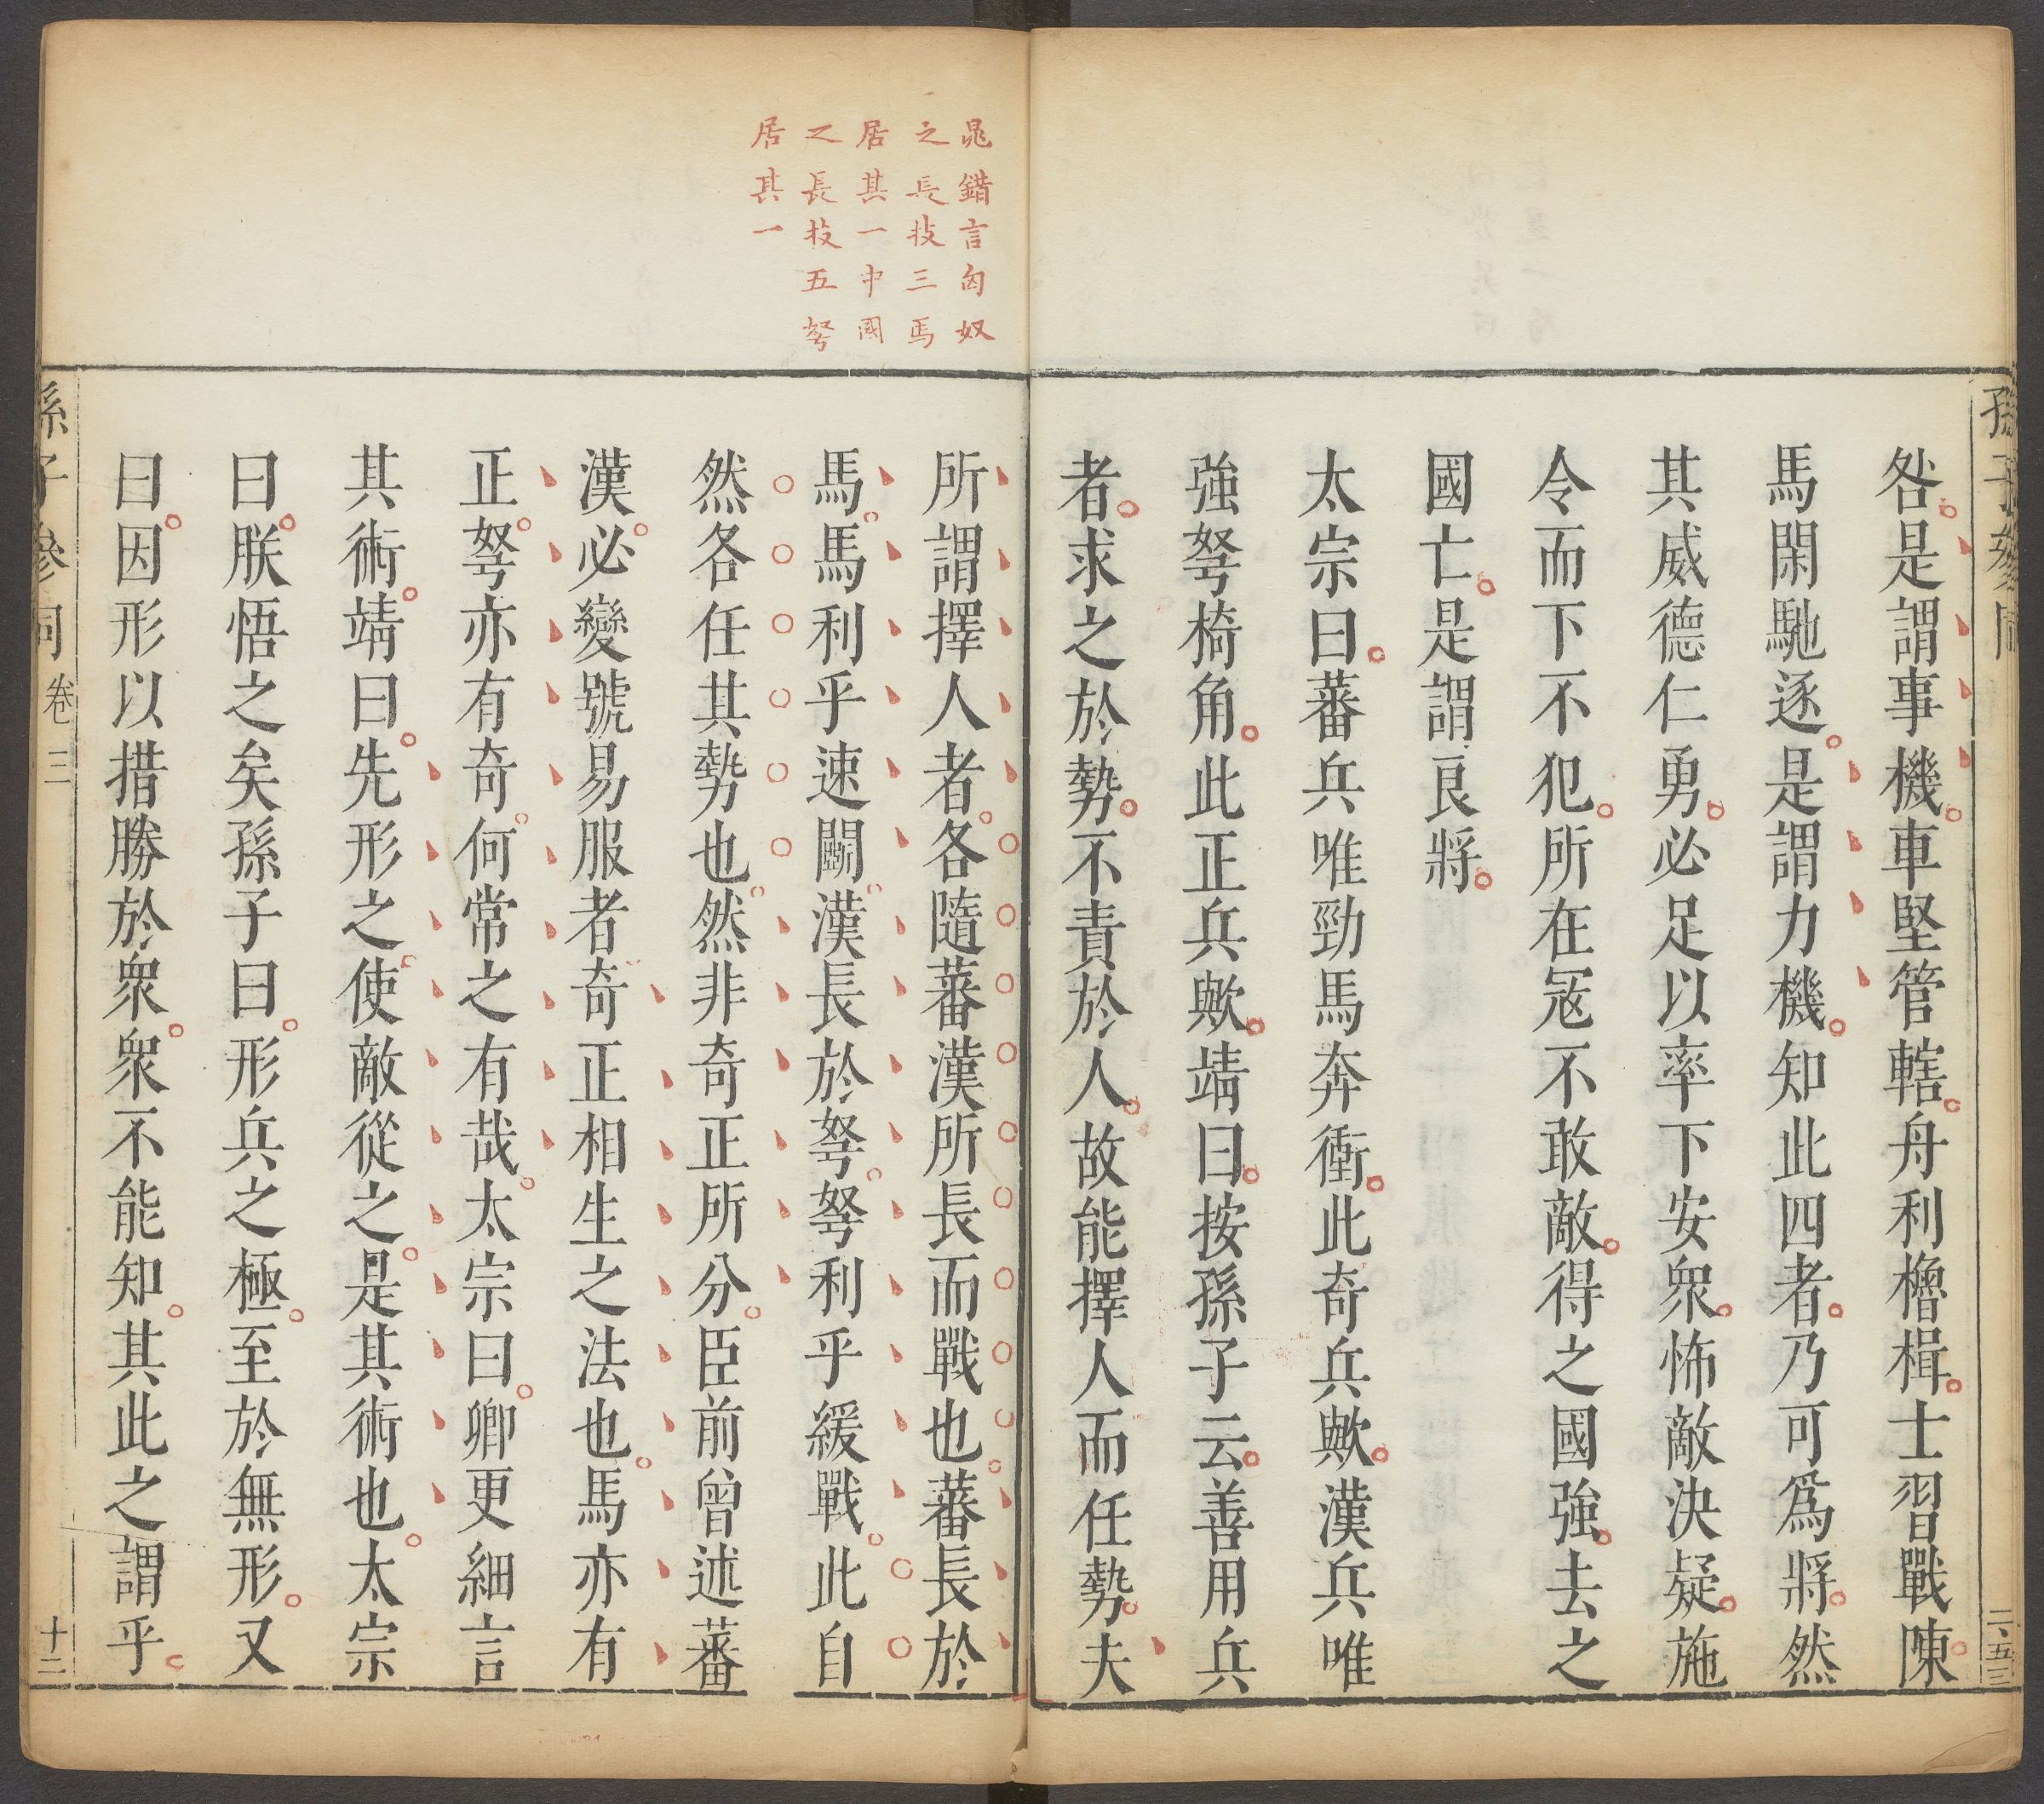 孫子參同
咎是謂事機車堅管轄舟利櫓楫士習戰陳
馬閑馳逐是謂力機知此四者乃可爲將然
其威德仁勇必足以率下安衆怖敵決疑施
令而下不犯所在冦不敢敵得之國強去之
國亡是謂良將
太宗曰蕃兵唯勁馬奔衝此奇兵歟漢兵唯
強弩椅角此正兵歟靖曰按孫子云善用兵
者求之於勢不責於人故能擇人而任勢夫
晁錯言匈奴
之長技三馬
居其一中國
之長技五弩
居其一
所謂擇人者各隨蕃漢所長而戰也蕃長於
馬馬利乎速鬬漢長於弩弩利乎緩戰此自
然各任其勢也然非奇正所分臣前曾述蕃
漢必變號易服者奇正相生之法也馬亦有
正弩亦有奇何常之有哉太宗曰卿更細言
其術靖曰先形之使敵從之是其術也太宗
曰朕悟之矣孫子曰形兵之極至於無形又
曰因形以措勝於衆衆不能知其此之謂乎
孫子參同 卷三 十二